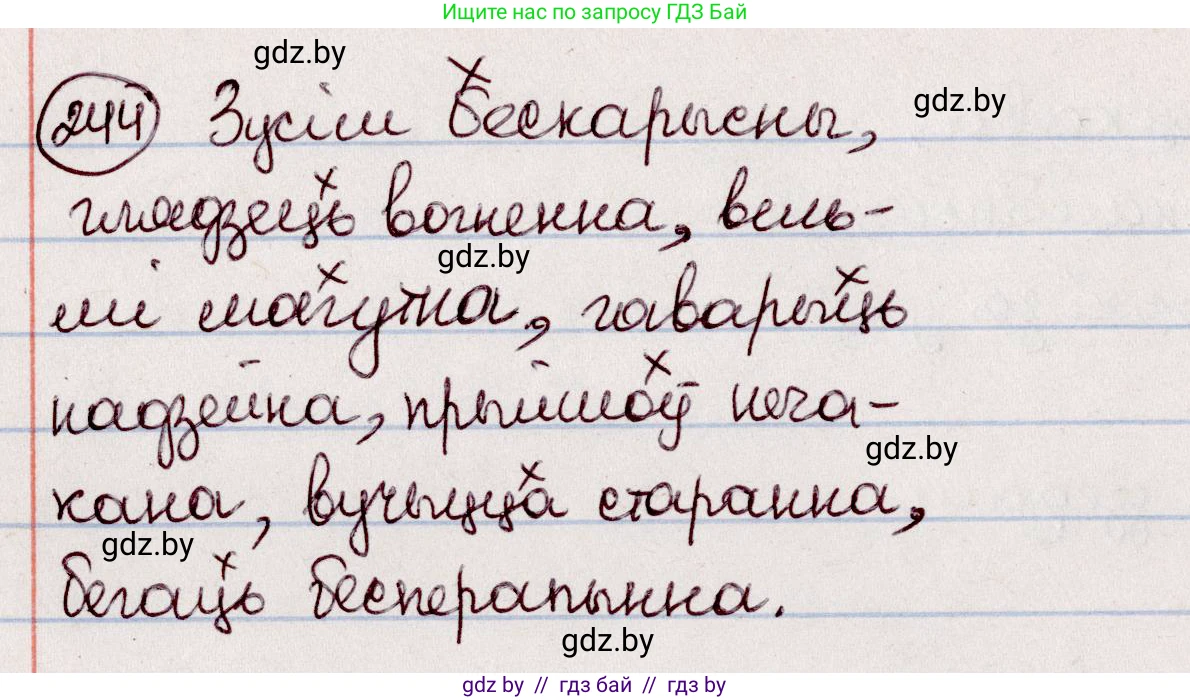 Ищите нас по запросу ГДЗ Бай
gdz.by
244 Зусім бескарысны,
gdz.by
глядзець вогненна, вель-
gdz.by
мі магутна, гаварыць
надзейна, прыйшоў неча-
gdz.by
кана, вучыцца старанна,
gdz.by
бегаць бесперапынна.
gdz.by
gdz.by // гдз бай // gdz.by